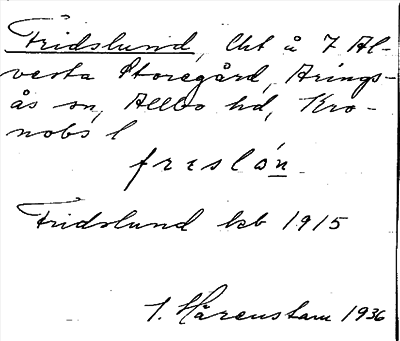 Fridslund, lht å 7 Al-
vesta Storegård, Arings-
ås sn, Allbo hd, Kro-
nobs l
frɪslón
Fridslund kb 1915
J. Hårenstam 1936